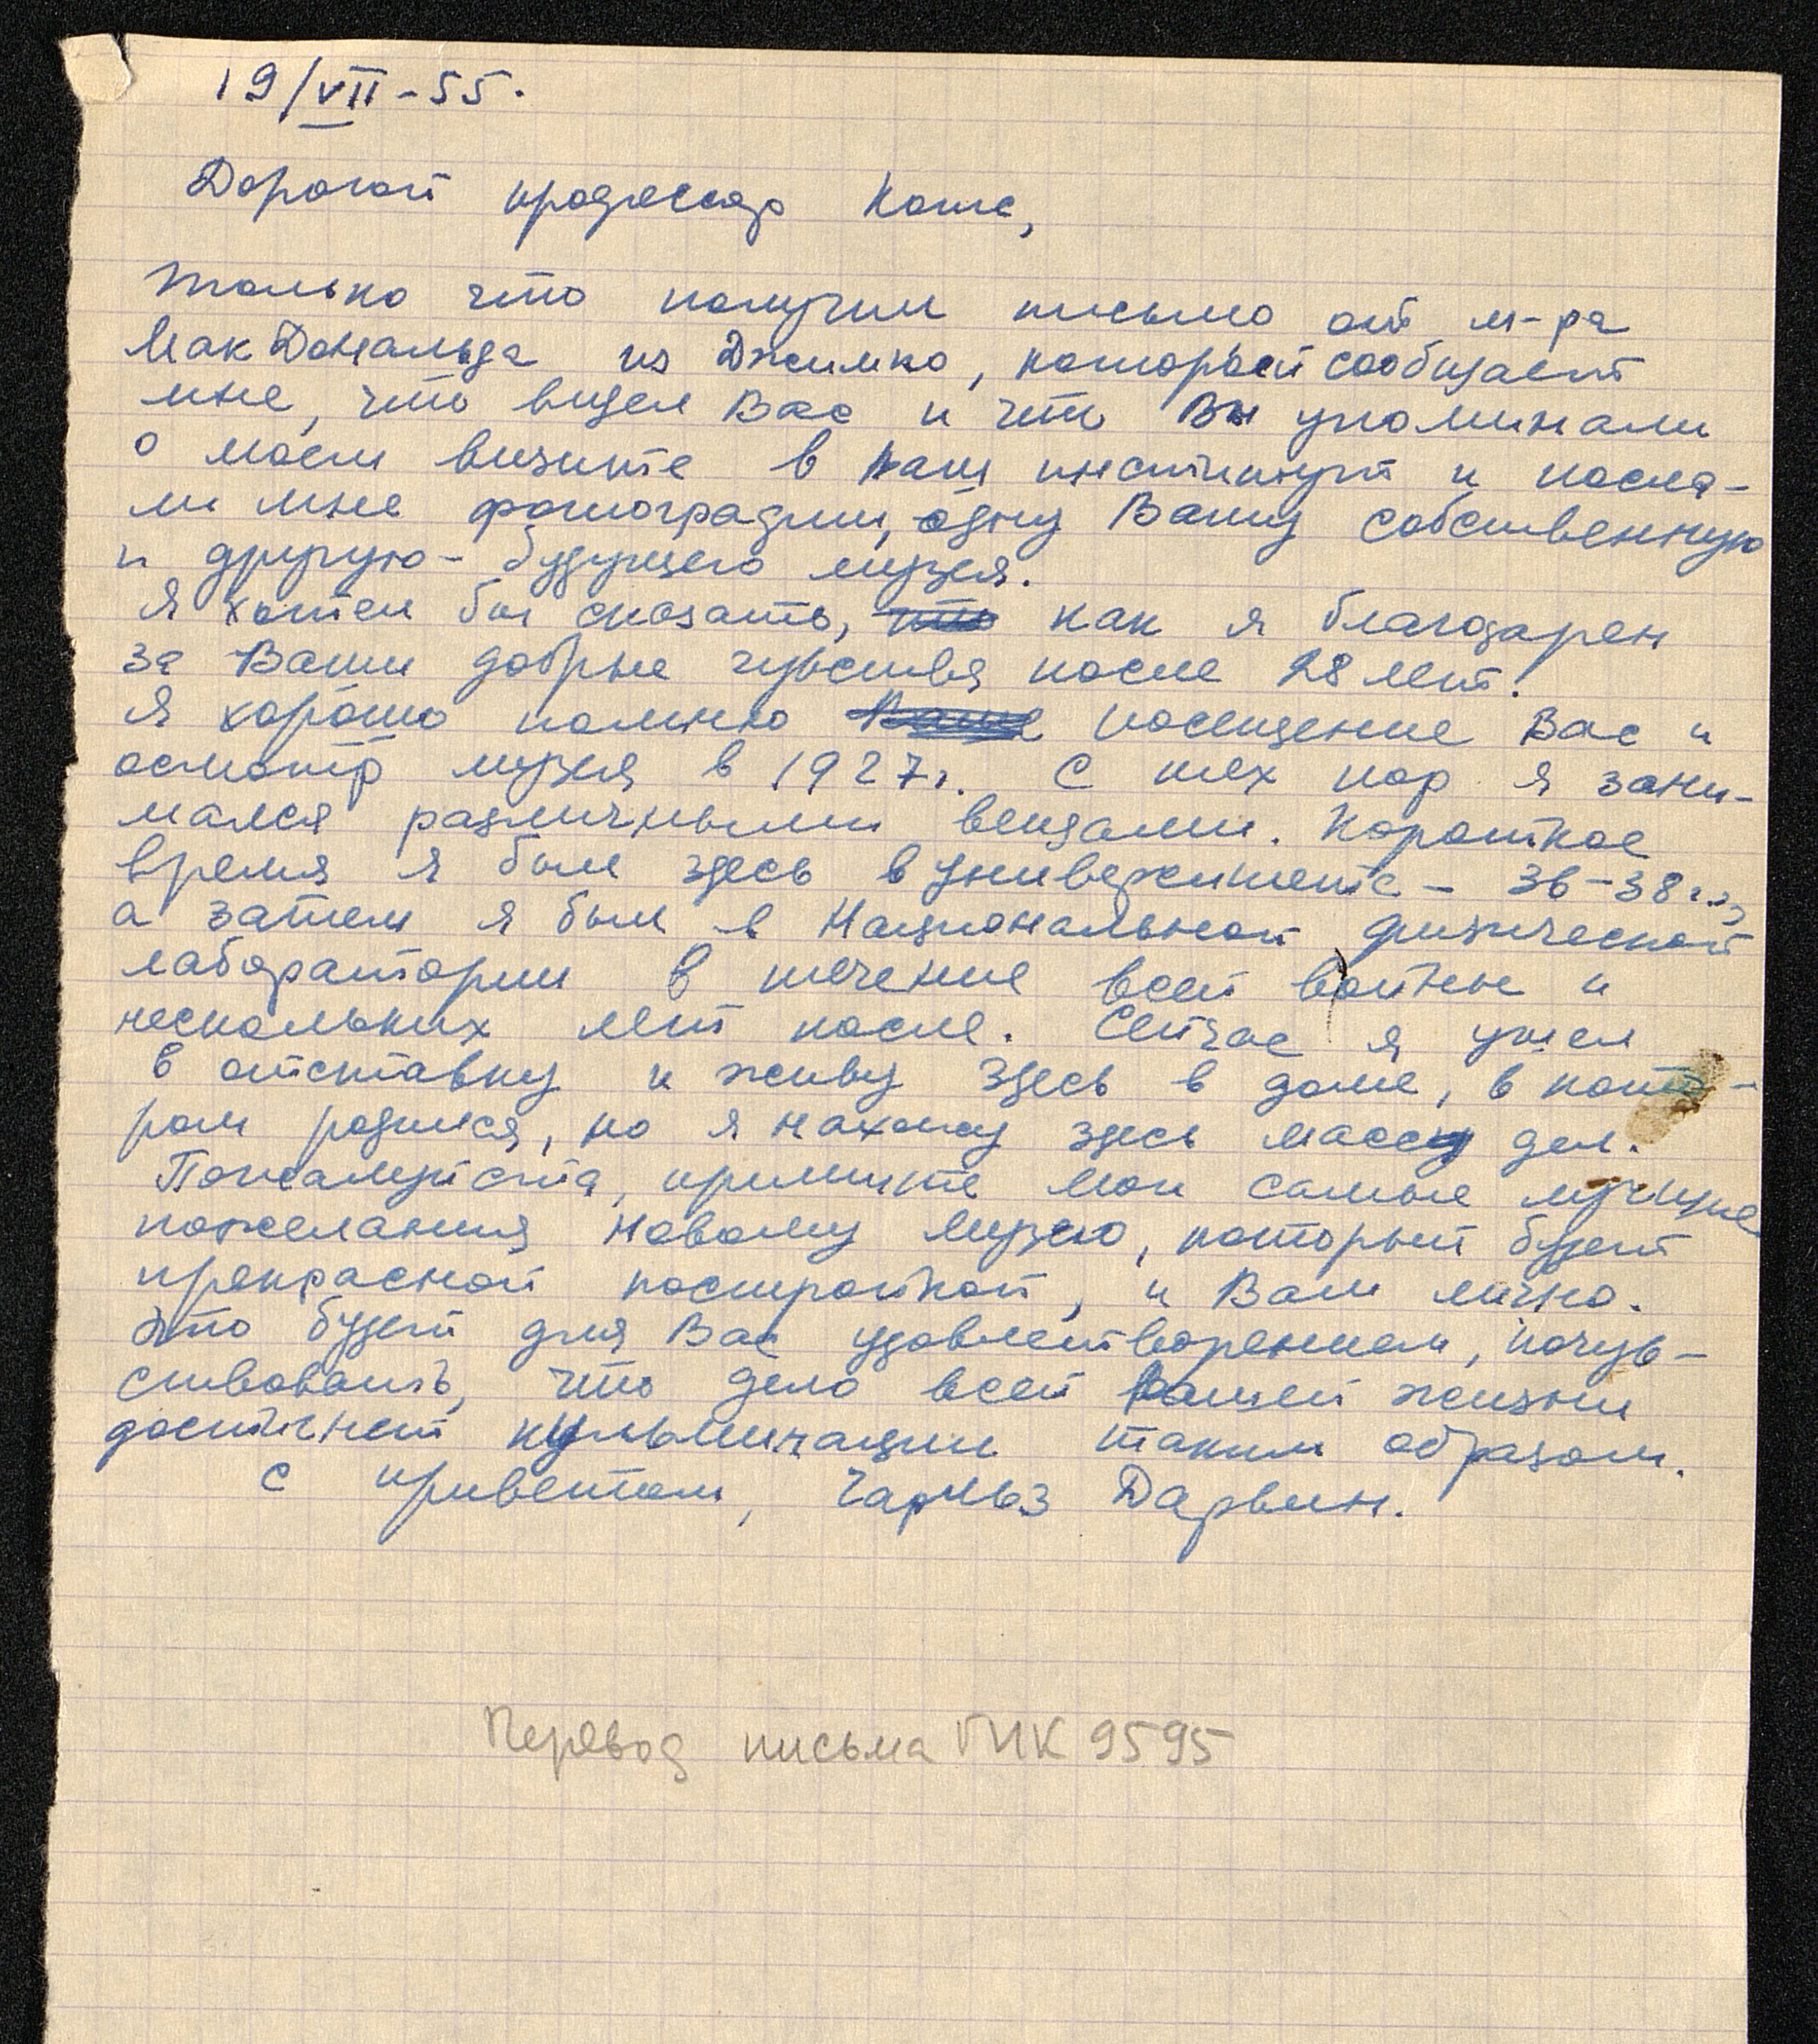 19/VII-55.
Дорогой профессор Котс,
только что получил письмо от м-ра
МакДональда из Джилко, который сообщает
мне, что видел Вас и что Вы упоминали
о моем визите в Ваш институт и посла-
ли мне фотографии, одну Вашу собственную
и другую - будущего музея.
Я хотел бы сказать, что как я благодарен
за Ваши добрые чувства после 28 лет!
Я хорошо помню Ваше посещение Вас и
осмотр музея в 1927г. С тех пор я зани-
мался различными вещами. Короткое
время я был здесь в университете - 36-38г.г.,
а затем я был в Национальной физической
лаборатории в течение всей войны и
нескольких лет после. Сейчас я ушел
в отставку и живу здесь в доме, в кото-
ром родился, но я нахожу здесь массу дел.
Пожалуйста, примите мои самые лучшие
пожелания новому музею, который будет
прекрасной постройкой, и Вам лично.
Это будет для Вас удовлетворением, почув-
ствовать, что дело всей Вашей жизни
достигнет кульминации таким образом.
С приветом, Чарльз Дарвин.
Перевод письма ГИК 9595